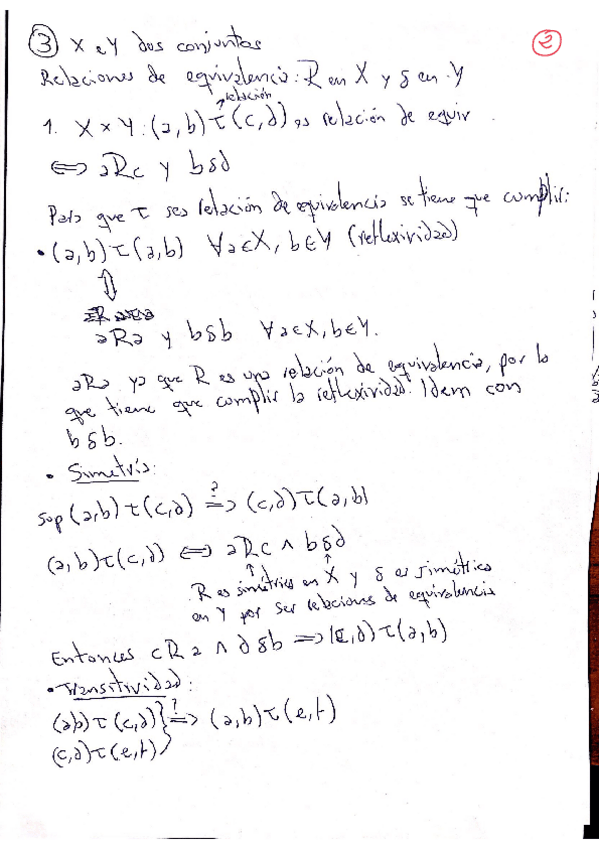 ③ X e Y dos conjuntos
②
Relaciones de equivalencia: R en X y S en Y
relación
1. X × Y : (a,b) τ (c,d) es relación de equiv.
⟺ aRc y bSd
Para que τ sea relación de equivalencia se tiene que cumplir:
• (a,b) τ (a,b) ∀a∈X, b∈Y (reflexividad)
⇕
aRa y bSb ∀a∈X, b∈Y.
aRa ya que R es una relación de equivalencia, por lo
que tiene que cumplir la reflexividad. Idem con
bSb.
• Simetría:
Sup (a,b) τ (c,d) ?⟹ (c,d) τ (a,b)
(a,b) τ (c,d) ⟺ aRc ∧ bSd
R es simétrica en X y S es simétrica
en Y por ser relaciones de equivalencia
Entonces cRa ∧ dSb ⟹ (c,d) τ (a,b)
• Transitividad:
(a,b) τ (c,d) } ?⟹ (a,b) τ (e,f)
(c,d) τ (e,f)